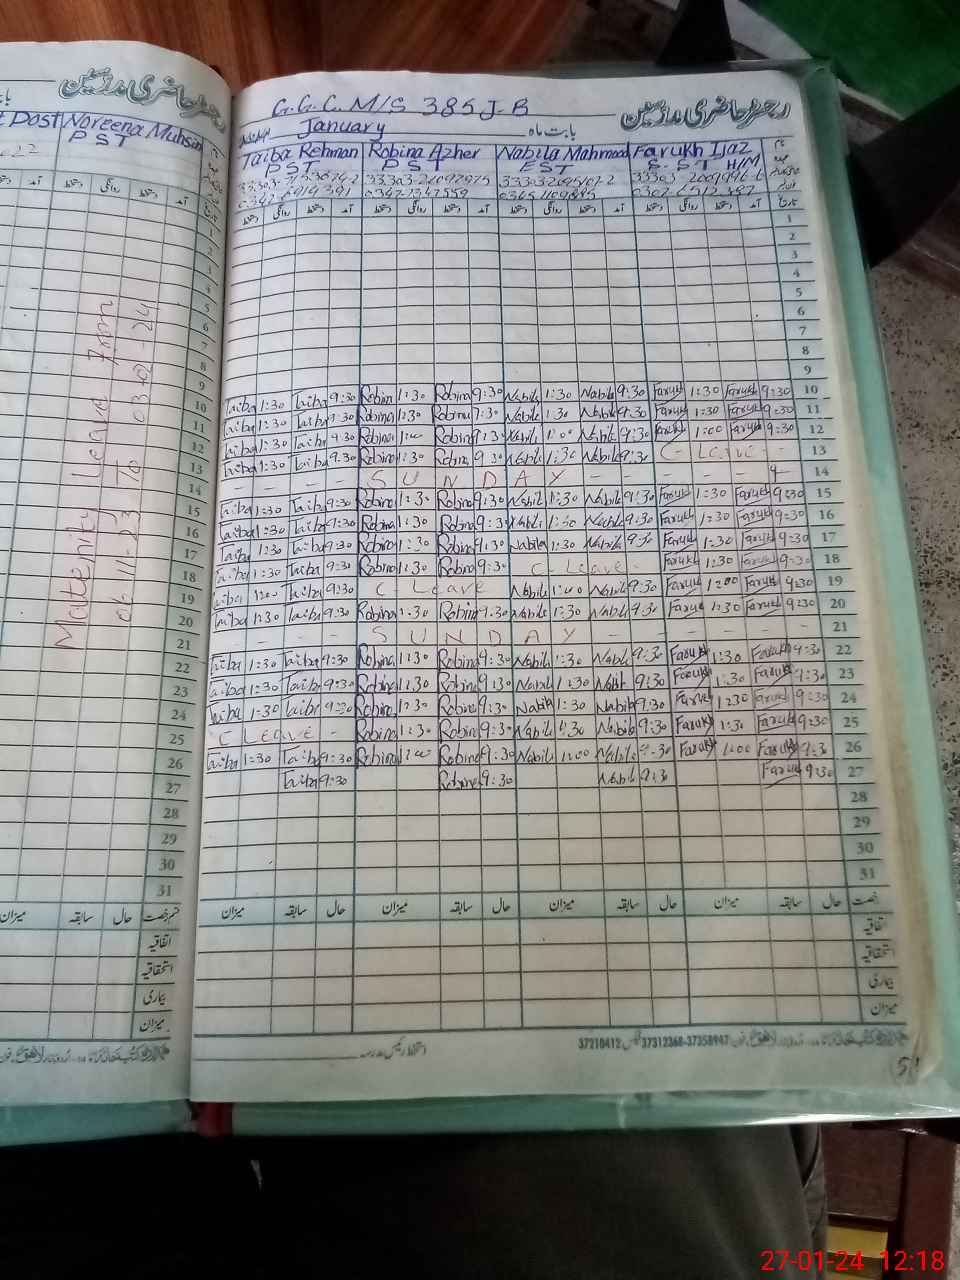 رجسٹر حاضری مدرسین
t Post Noreena Muhsin
PST
Maternity Leave From
01-11-23 To 03-01-24
G.G.C.M/S 385 J.B
رجسٹر حاضری مدرسین
January بابت ماہ
Taiba Rehman Robina Azher Nabila Mahmood Farukh Ijaz
PST PST EST S.S.T H/M
دستخط روانگی دستخط آمد دستخط روانگی دستخط آمد دستخط روانگی دستخط آمد دستخط روانگی دستخط آمد تاریخ
1
2
3
4
5
6
7
8
9
Taiba 1:30 Taiba 9:30 Robina 1:30 Robina 9:30 Nabila 1:30 Nabila 9:30 Farukh 1:30 Farukh 9:30 10
Taiba 1:30 Taiba 9:30 Robina 1:30 Robina 9:30 Nabila 1:30 Nabila 9:30 Farukh 1:30 Farukh 9:30 11
Taiba 1:30 Taiba 9:30 Robina 1:00 Robina 9:30 Nabila 1:00 Nabila 9:30 Farukh 1:00 Farukh 9:30 12
Taiba 1:30 Taiba 9:30 Robina 1:30 Robina 9:30 Nabila 1:30 Nabila 9:30 C-Leave 13
SUNDAY 14
Taiba 1:30 Taiba 9:30 Robina 1:30 Robina 9:30 Nabila 1:30 Nabila 9:30 Farukh 1:30 Farukh 9:30 15
Taiba 1:30 Taiba 9:30 Robina 1:30 Robina 9:30 Nabila 1:30 Nabila 9:30 Farukh 1:30 Farukh 9:30 16
Taiba 1:30 Taiba 9:30 Robina 1:30 Robina 9:30 Nabila 1:30 Nabila 9:30 Farukh 1:30 Farukh 9:30 17
Taiba 1:30 Taiba 9:30 Robina 1:30 Robina 9:30 C-Leave Farukh 1:30 Farukh 9:30 18
Taiba 1:00 Taiba 9:30 C-Leave Nabila 1:00 Nabila 9:30 Farukh 1:00 Farukh 9:30 19
Taiba 1:30 Taiba 9:30 Robina 1:30 Robina 9:30 Nabila 1:30 Nabila 9:30 Farukh 1:30 Farukh 9:30 20
SUNDAY 21
Taiba 1:30 Taiba 9:30 Robina 1:30 Robina 9:30 Nabila 1:30 Nabila 9:30 Farukh 1:30 Farukh 9:30 22
Taiba 1:30 Taiba 9:30 Robina 1:30 Robina 9:30 Nabila 1:30 Nabila 9:30 Farukh 1:30 Farukh 9:30 23
Taiba 1:30 Taiba 9:30 Robina 1:30 Robina 9:30 Nabila 1:30 Nabila 9:30 Farukh 1:30 Farukh 9:30 24
C Leave Robina 1:30 Robina 9:30 Nabila 1:30 Nabila 9:30 Farukh 1:30 Farukh 9:30 25
Taiba 1:30 Taiba 9:30 Robina 1:00 Robina 9:30 Nabila 1:00 Nabila 9:30 Farukh 1:00 Farukh 9:30 26
Taiba 9:30 Robina 9:30 Nabila 9:30 Farukh 9:30 27
28
29
30
31
میزان سابقہ حال میزان سابقہ حال میزان سابقہ حال میزان سابقہ حال
اتفاقیہ
استحقاقیہ
بیماری
میزان
دستخط رئیس مدرسہ
37210412 فیکس 37312368-37358947
27-01-24 12:18